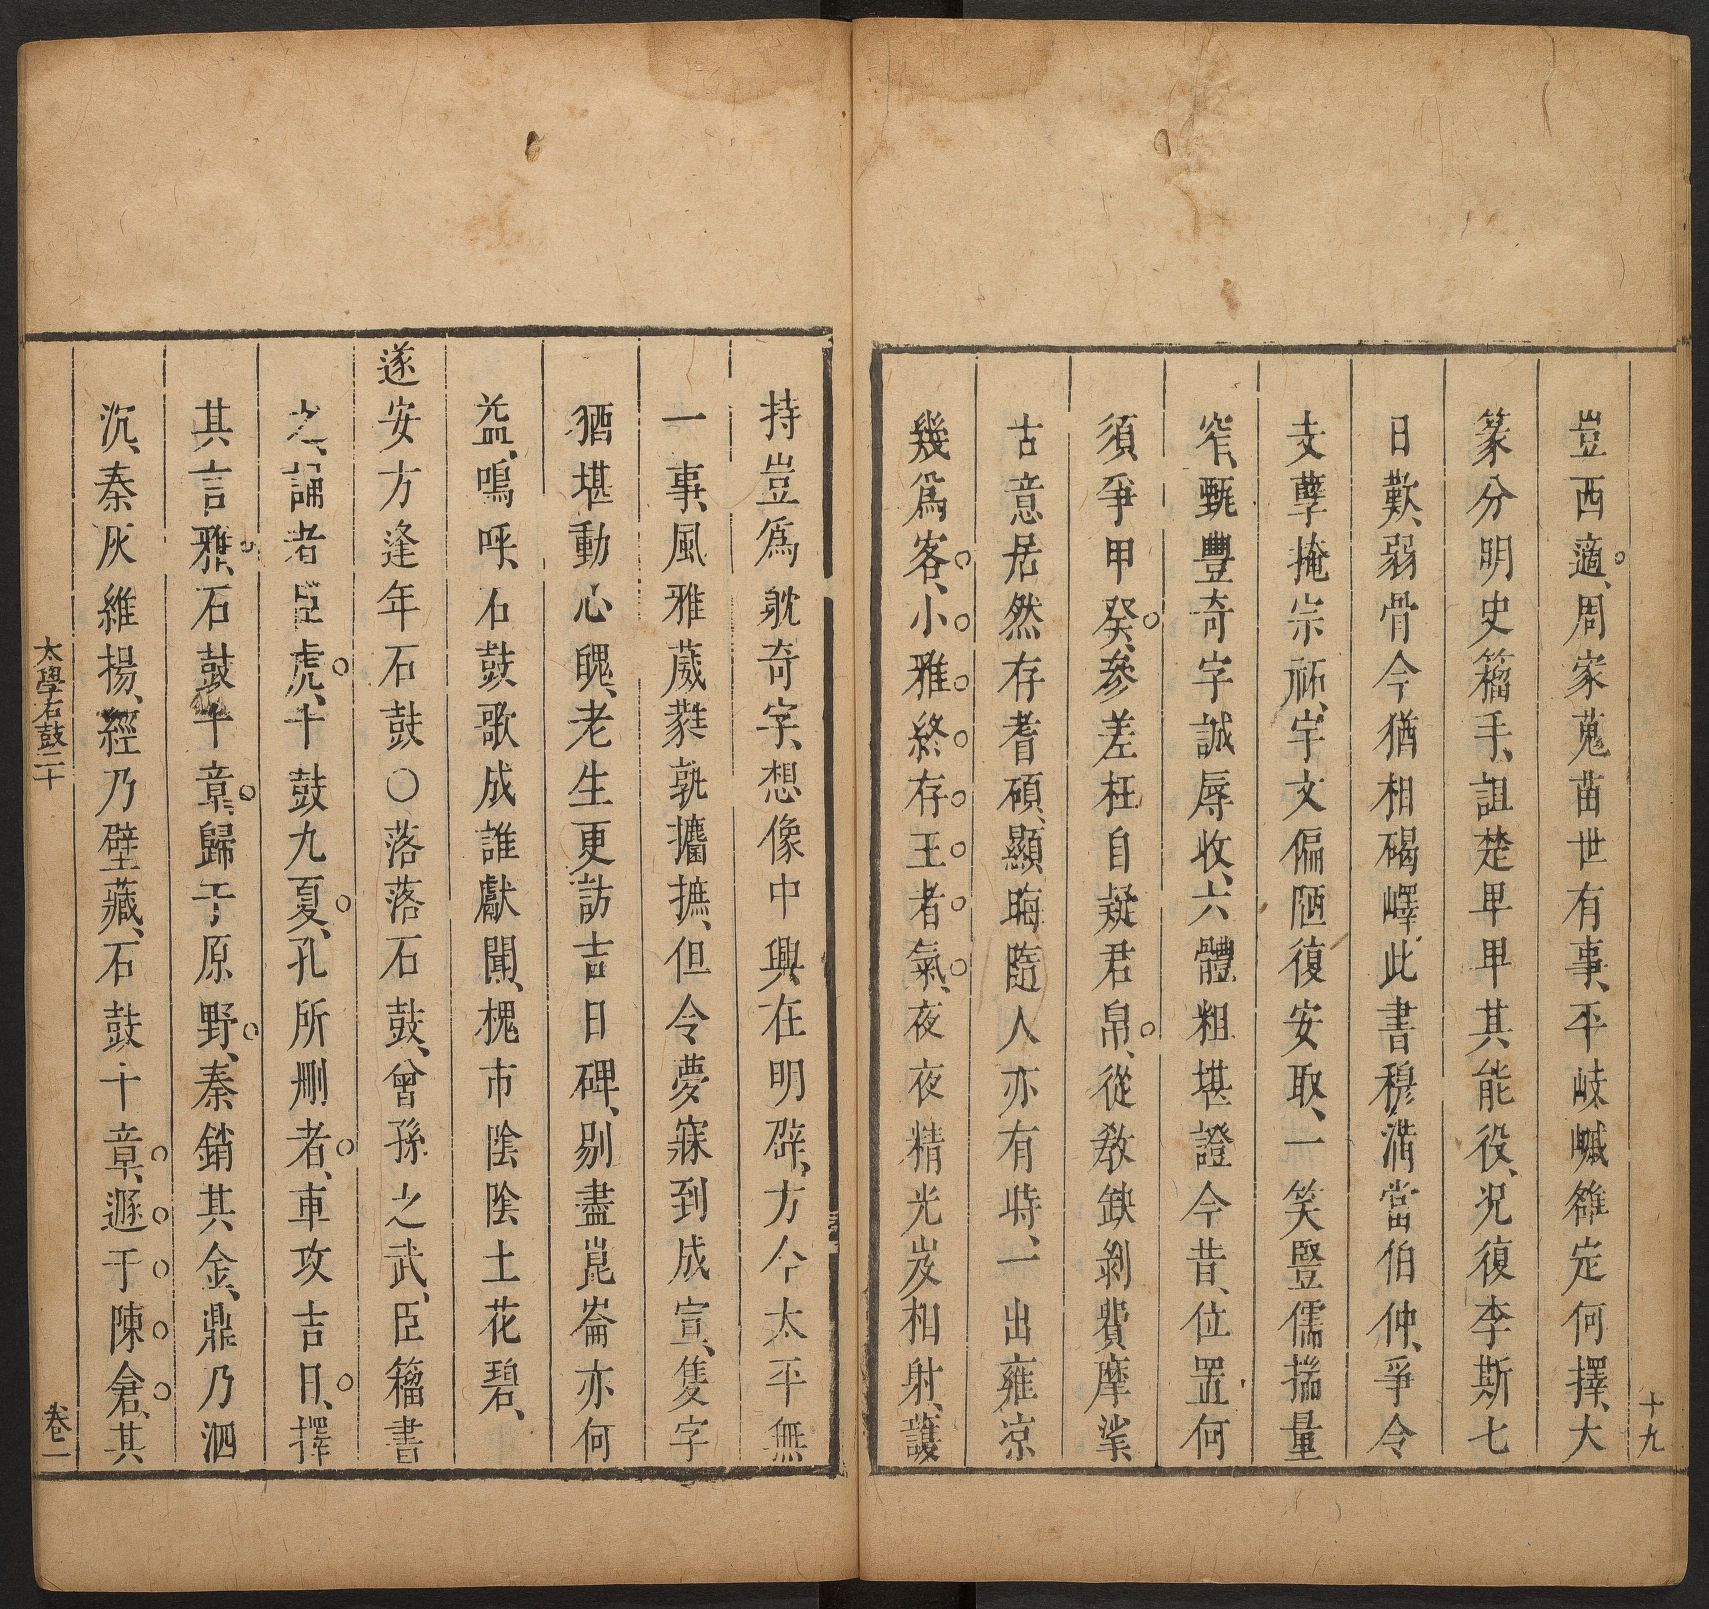 十九
豈西適、周家蒐苗世有事、平岐巇雒定何擇、大
篆分明史籀手、詛楚卑卑其能役、況復李斯七
日歎、弱骨今猶相碣嶧、此書穆滿當伯仲、爭令
攴孽掩宗祏、宇文偏陋復安取、一笑豎儒揣量
窄、甄豐奇字誠辱收、六體粗堪證今昔、位置何
須爭甲癸、參差枉自疑君帛、從教缺剝費摩挲
古意居然存耆碩、顯晦隨人亦有時、一出雍凉
幾爲客、小雅終存王者氣、夜夜精光岌相射、護
持豈爲躭奇字、想像中興在明辟、方今太平無
一事、風雅葳蕤孰攟摭、但令夢寐到成宣、隻字
猶堪動心魄、老生更訪吉日碑、剔盡崑崙亦何
益、嗚呼、石鼓歌成誰獻闕、槐市陰陰土花碧、
遂安方逢年石鼓○落落石鼓、曾孫之武、臣籀書
之、誦者臣虎、十鼓九夏、孔所刪者、車攻吉日、擇
其言雅、石鼓十章、歸于原野、秦銷其金、鼎乃泗
沉、秦灰維揚、經乃壁藏、石鼓十章、遯于陳倉、其
太學石鼓二十
卷一